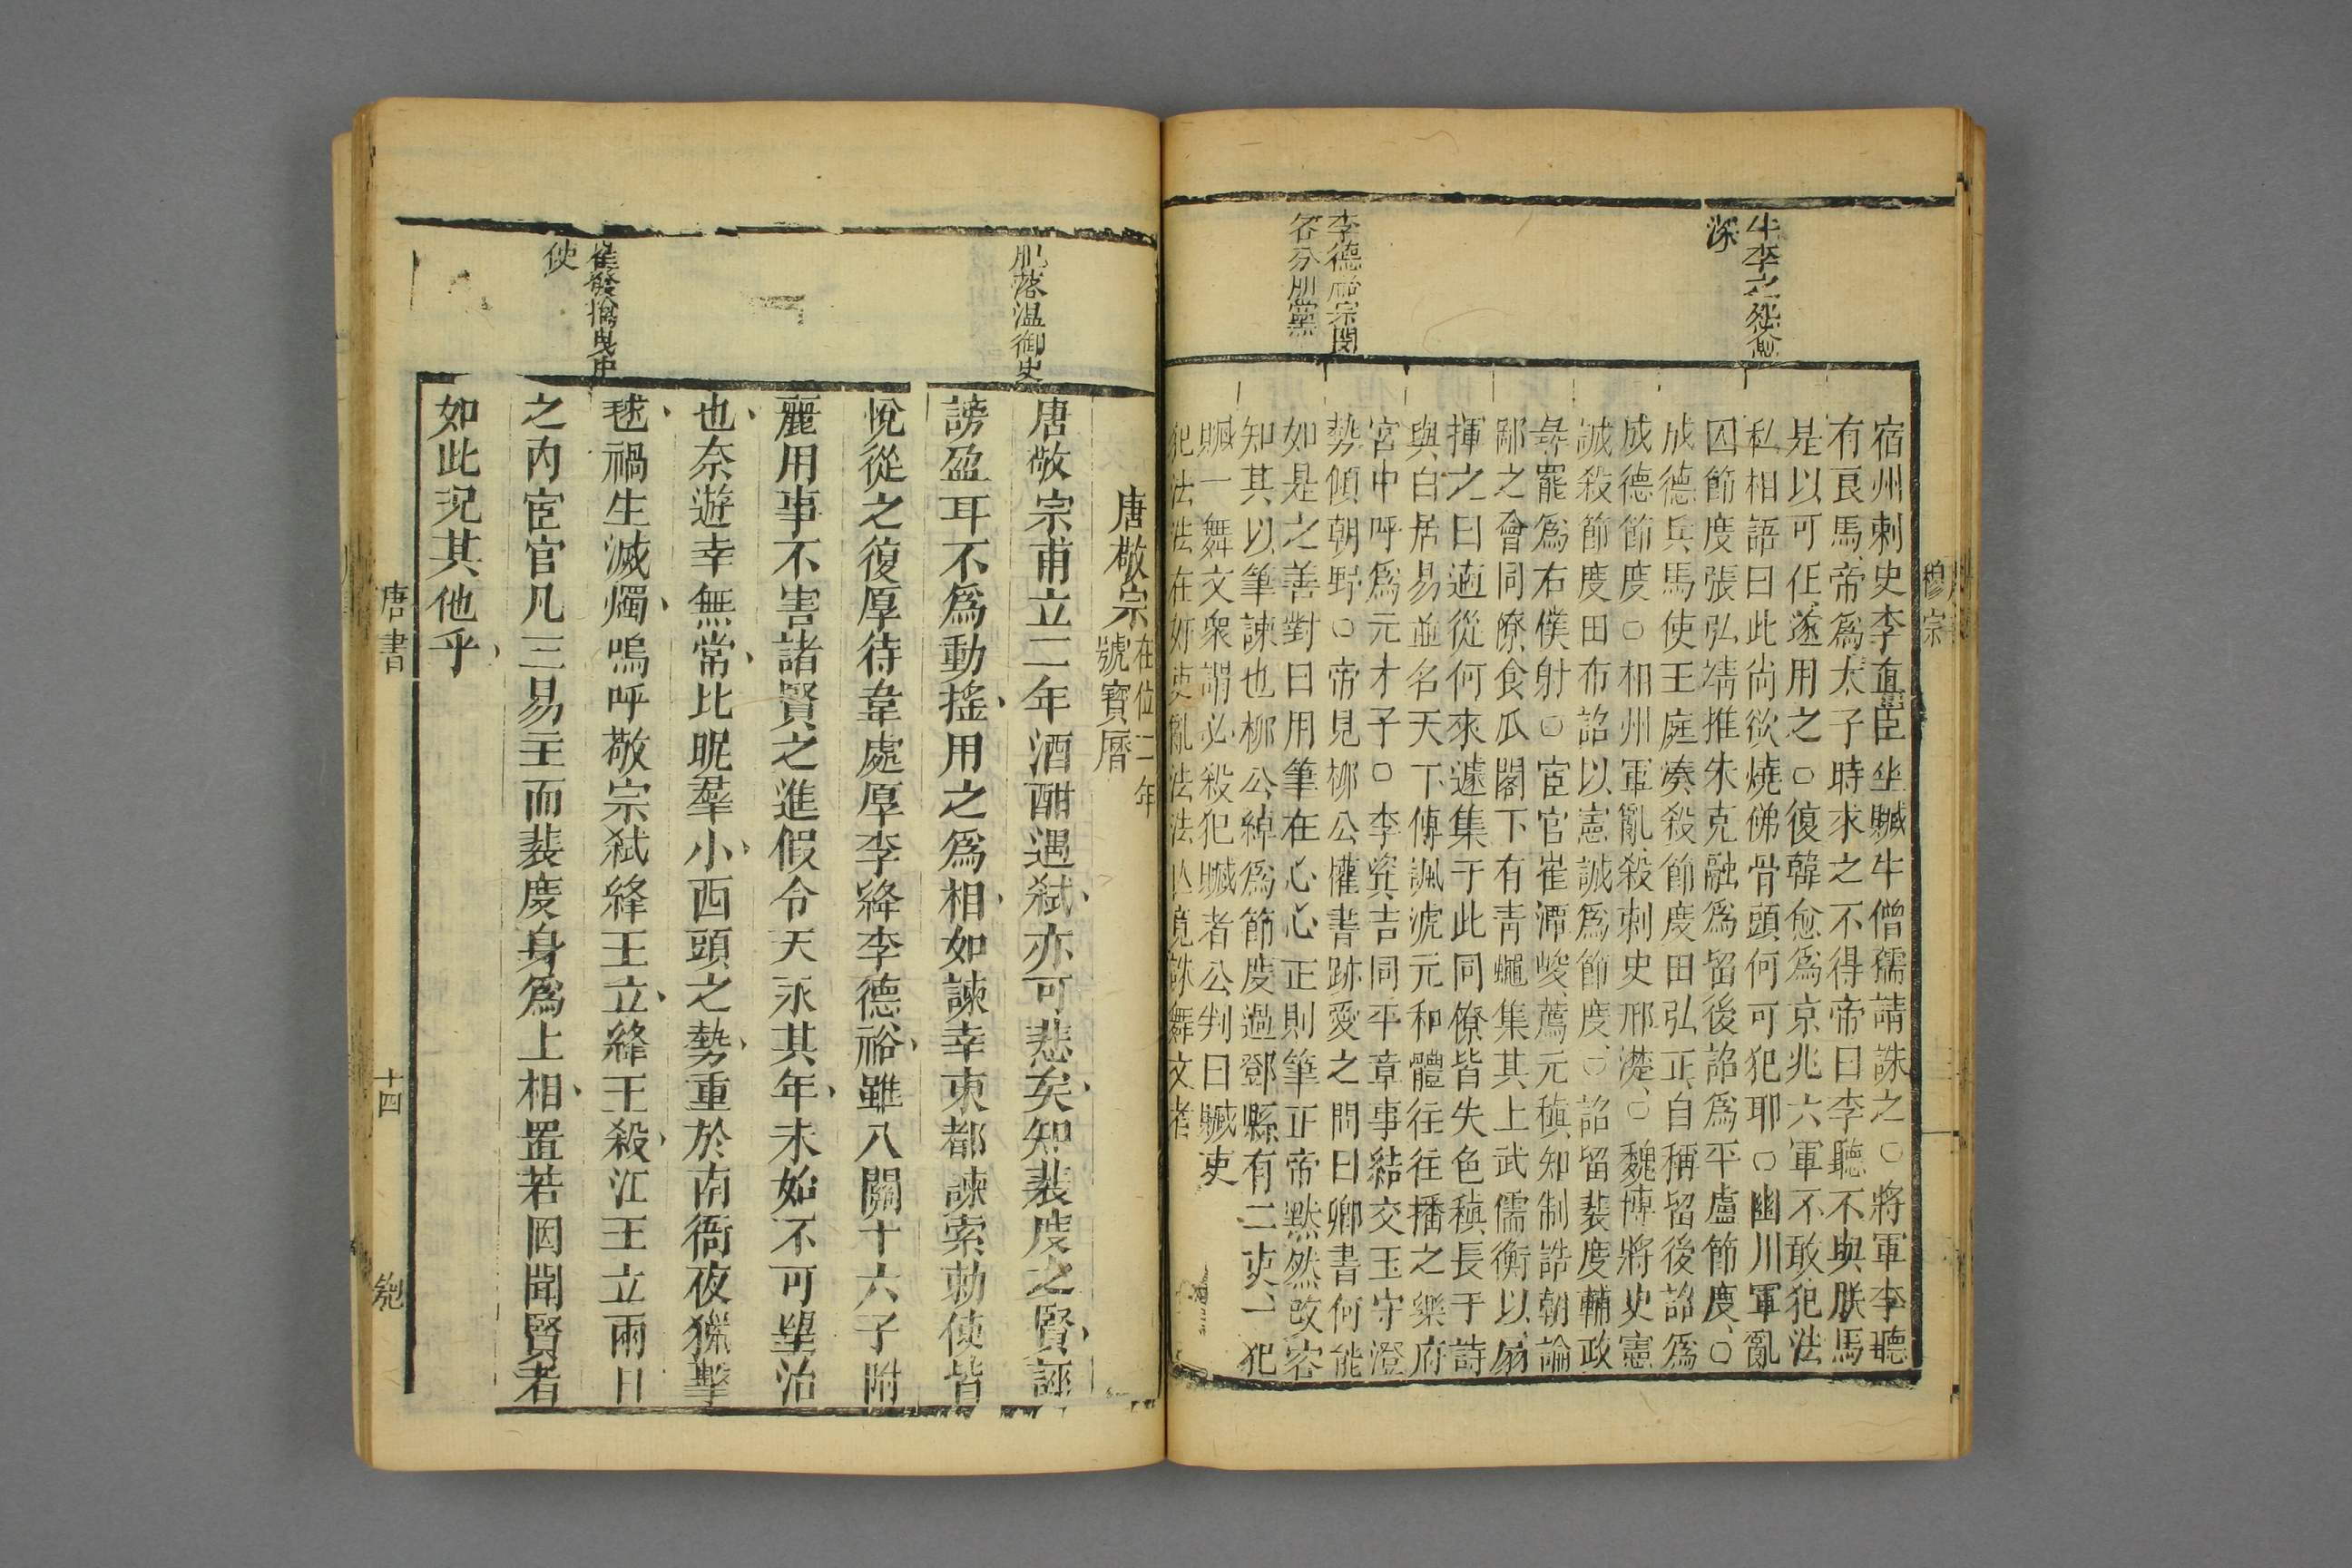 穆宗
牛李之怨愈
深
李德裕宗閔
各分朋黨
宿州刺史李直臣坐贓牛僧孺請誅之○將軍李聽
有良馬帝為太子時求之不得帝曰李聽不與朕馬
是以可任遂用之○復韓愈為京兆六軍不敢犯法
私相語曰此尚欲燒佛骨頭何可犯耶○幽川軍亂
因節度張弘靖推朱克融為留後詔為平盧節度○
成德兵馬使王庭湊殺節度田弘正自稱留後詔為
成德節度○相州軍亂殺刺史邢濋○魏博將史憲
誠殺節度田布詔以憲誠為節度○詔留裴度輔政
彞罷為右僕射○宦官崔潭峻薦元稹知制誥朝論
鄙之會同僚食瓜閣下有青蠅集其上武儒衡以扇
揮之曰適從何來遽集于此同僚皆失色稹長于詩
與白居易並名天下傳諷號元和體往往播之樂府
宮中呼為元才子○李逢吉同平章事結交王守澄
勢傾朝野○帝見柳公權書跡愛之問曰卿書何能
如是之善對曰用筆在心心正則筆正帝默然改容
知其以筆諫也柳公綽為節度過鄧縣有二吏一犯
贓一舞文衆謂必殺犯贓者公判曰贓吏
犯法法在奸吏亂法法亡竟誅舞文者
肌落溫御史
崔發擒曳中
使
唐敬宗在位二年
號寶曆
唐敬宗甫立二年酒酣遇弒亦可悲矣知裴度之賢誣
謗盈耳不為動搖用之為相如諫幸東都諫索勅使皆
悅從之復厚待韋處厚李絳李德裕雖八關十六子附
麗用事不害諸賢之進假令天永其年未始不可望治
也奈遊幸無常比昵羣小西頭之勢重於南衙夜獵擊
毬禍生滅燭嗚呼敬宗弒絳王立絳王殺江王立兩日
之內宦官凡三易主而裴度身為上相置若罔聞賢者
如此況其他乎
唐書
十四